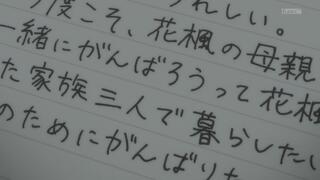 度こそ、花楓の母親
一緒にがんばろうって花楓
た家族三人で暮らしたい
のためにがんばりた